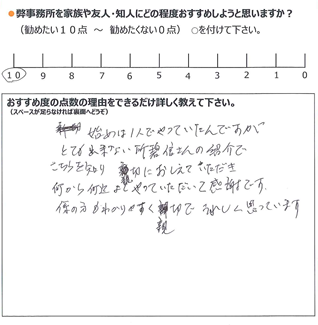 ●弊事務所を家族や友人・知人にどの程度おすすめしようと思いますか？
（勧めたい１０点 ～ 勧めたくない０点）○を付けて下さい。
10 9 8 7 6 5 4 3 2 1 0
おすすめ度の点数の理由をできるだけ詳しく教えて下さい。
（スペースが足らなければ裏面へどうぞ）
始めは1人でやっていたんですが
とても出来ない所 さんの紹介で
こちらを知り 親切におしえていただき
何から何迄 やっていただいて感謝です。
係の方もわかりやすく親切で うれしく思っています